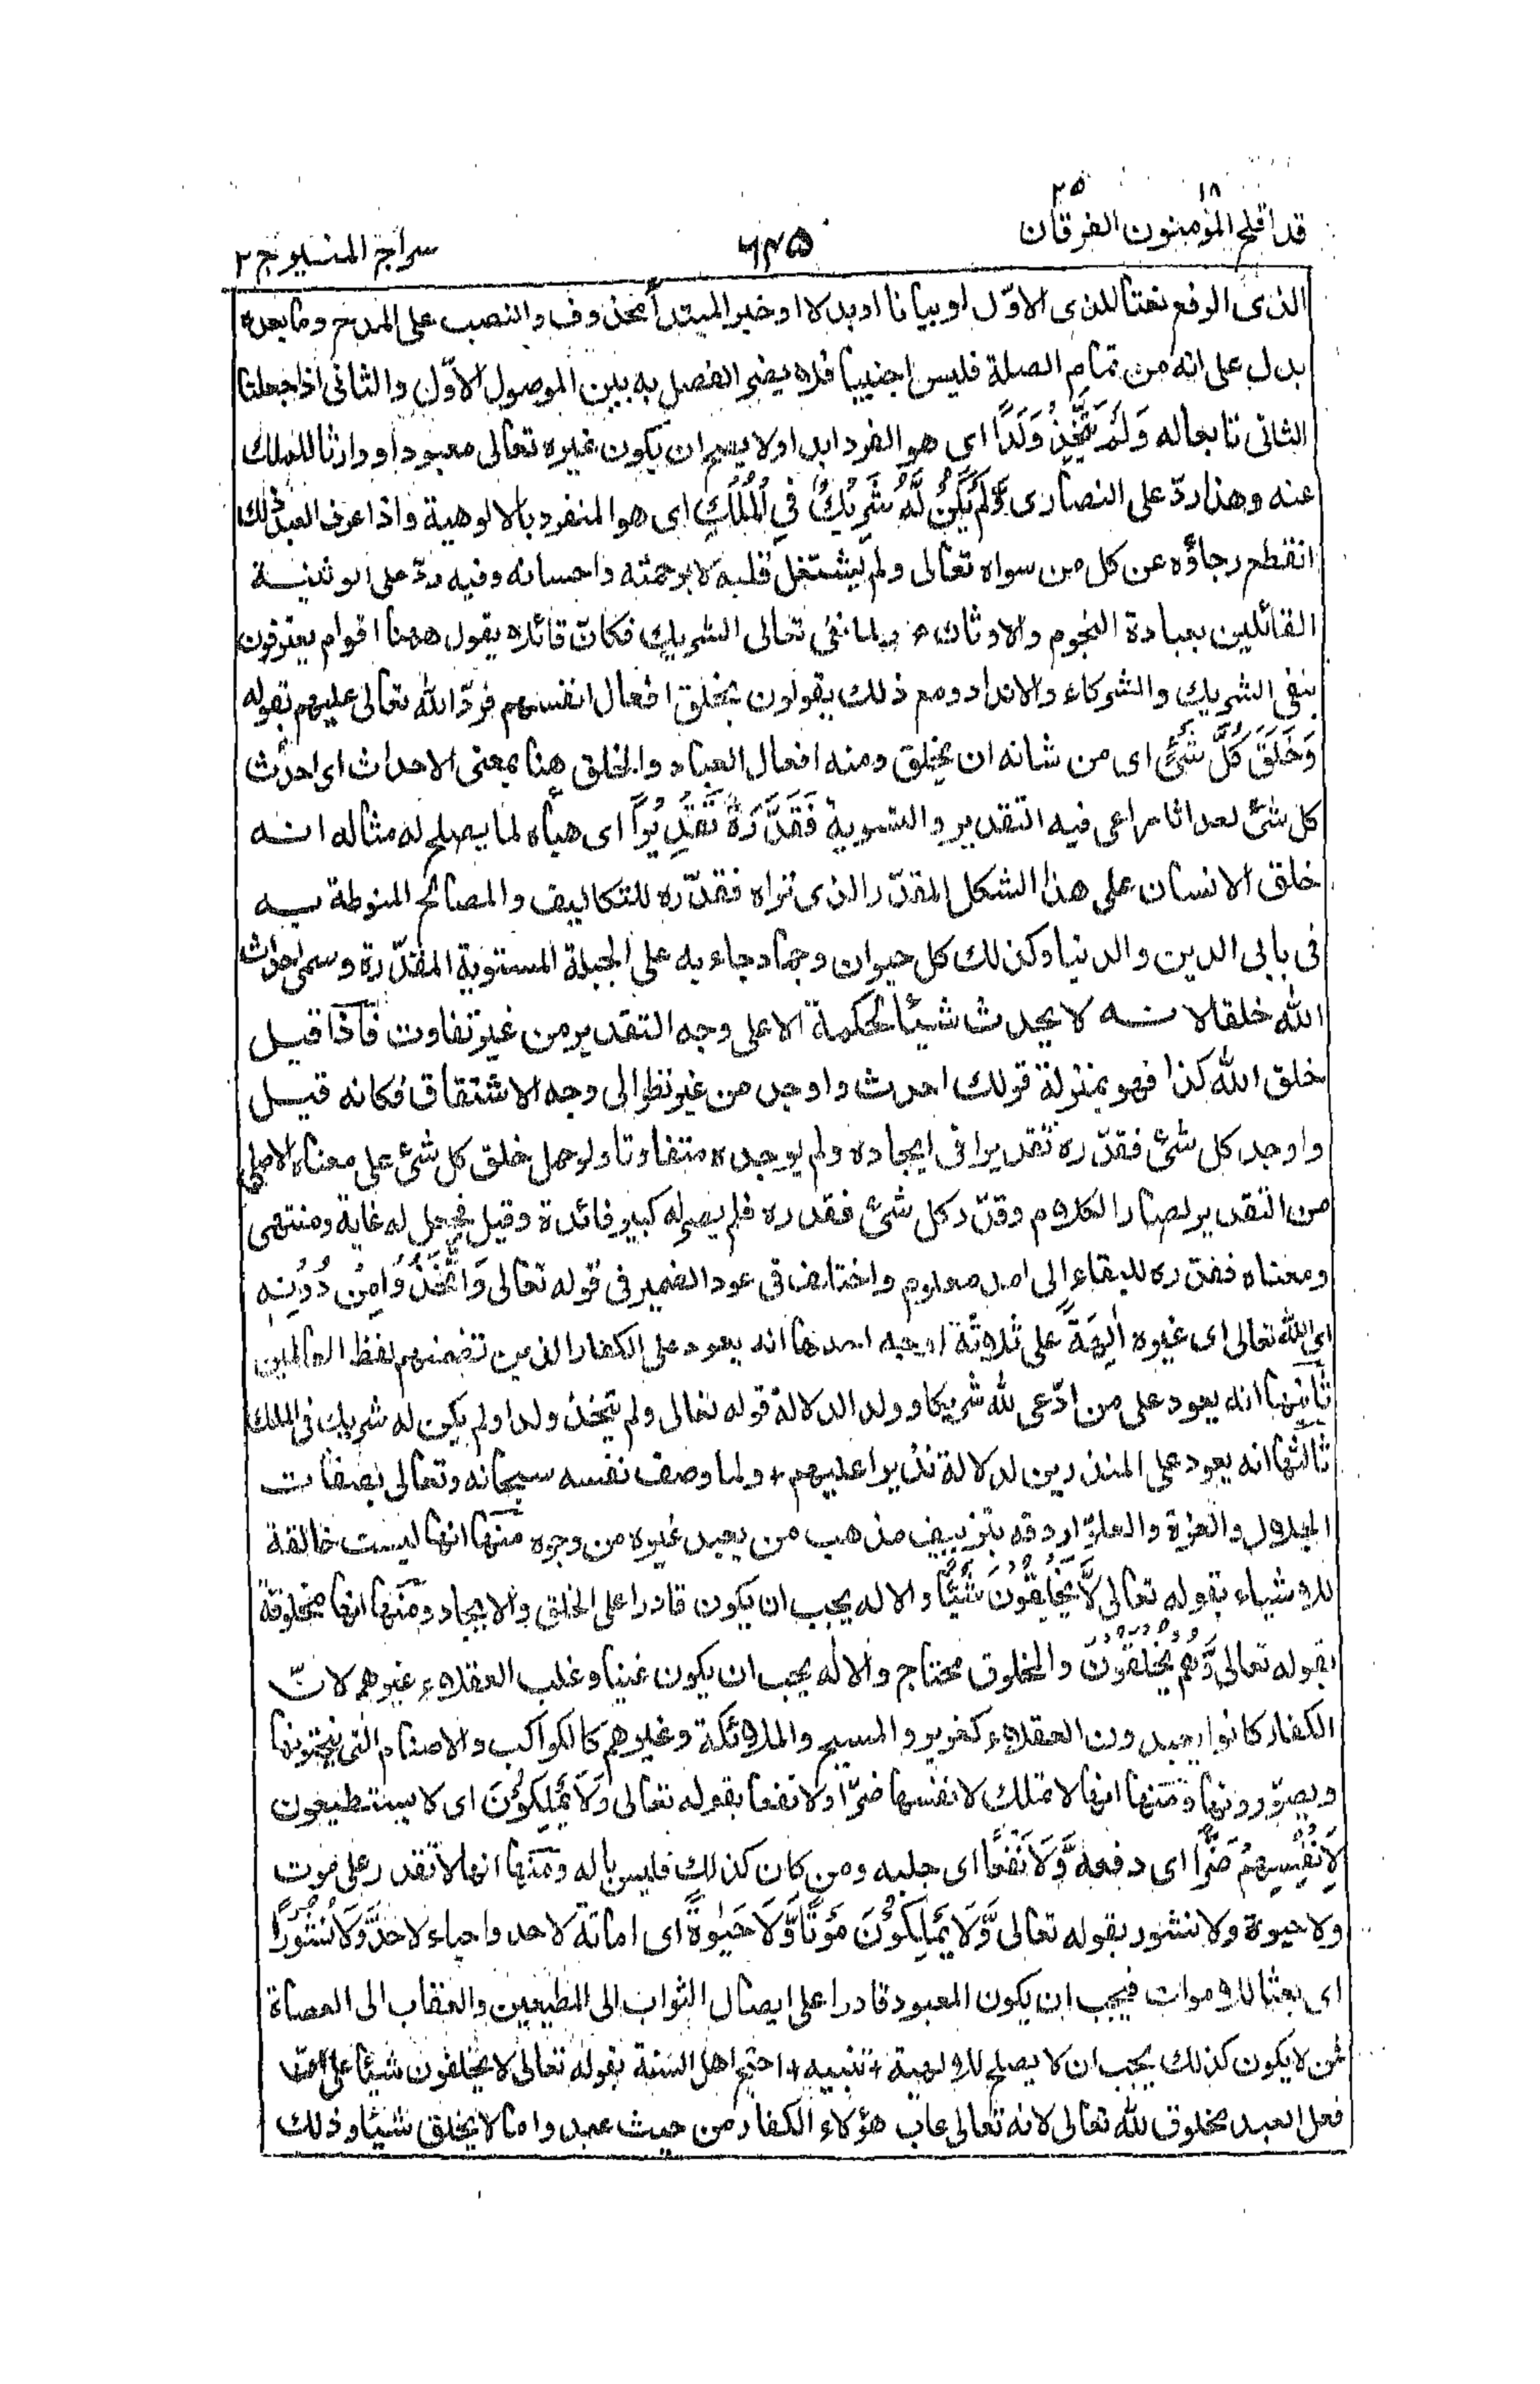 ١٨ ٢٥
قد افلح المؤمنون الفرقان ٦٤٥ سراج المنير ج ٢
الذى الرفع نعتا للذى الاوّل او بيانا او بدلا او خبر المبتدأ محذوف والنصب على المدح وما بعده
بدل على انه من تمام الصلة فليس اجنبيا فلا يضر الفصل به بين الموصول الاوّل والثانى اذا جعلنا
الثانى تابعا له وَلَمْ يَتَّخِذْ وَلَدًا اى هو الفرد ابدا ولا يصح ان يكون غيره تعالى معبودا و وارثا للملك
عنه وهذا ردّ على النصارى وَّلَمْ يَكُنْ لَّهٗ شَرِيْكٌ فِي الْمُلْكِ اى هو المنفرد بالالوهية واذا عرف العبد ذلك
انقطع رجاؤه عن كل من سواه تعالى ولم يشتغل قلبه الا برحمته واحسانه وفيه ردّ على الوثنية
القائلين بعبادة النجوم والاوثان ولما نفى تعالى الشريك فكانّ قائلا يقول ههنا اقوام يعترفون
بنفى الشريك والشركاء والانداد ومع ذلك يقولون بخلق افعال انفسهم فردّ الله تعالى عليهم بقوله
وَخَلَقَ كُلَّ شَيْءٍ اى من شانه ان يخلق ومنه افعال العباد والخلق هنا بمعنى الاحداث اى احدث
كل شئ احداثا مراعى فيه التقدير والتسوية فَقَدَّرَهٗ تَقْدِيْرًا اى هيأه لما يصلح له مثاله انه
خلق الانسان على هذا الشكل المقدّر الذى تراه فقدّره للتكاليف والمصالح المنوطة به
فى بابى الدين والدنيا وكذلك كل حيوان وجماد جاء به على الجبلة المستوية المقدّرة وسمى احداث
الله خلقا لانه لا يحدث شيئا لحكمة الا على وجه التقدير من غير تفاوت فاذا قيل
خلق الله كذا فهو بمنزلة قولك احدث واوجد من غير نظر الى وجه الاشتقاق فكانه قيل
واوجد كل شئ فقدّره تقديرا فى ايجاده ولم يوجده متفاوتا ولو حمل خلق كل شئ على معناه الاصلى
من التقدير لصار الكلام وقدّر كل شئ فقدره فلم يصر له كبير فائدة وقيل فجعل له غاية ومنتهى
ومعناه فقدّره للبقاء الى امد معلوم واختلف فى عود الضمير فى قوله تعالى وَاتَّخَذُوْا مِنْ دُوْنِهٖ
اى الله تعالى اى غيره اٰلِهَةً على ثلاثة اوجه احدها انه يعود على الكفار الذين تضمنهم لفظ العالمين
ثانيها انه يعود على من ادّعى لله شريكا وولدا لدلالة قوله تعالى ولم يتخذ ولدا ولم يكن له شريك فى الملك
ثالثها انه يعود على المنذرين لدلالة نذيرا عليهم + ولما وصف نفسه سبحانه وتعالى بصفات
الجلال والعزة والعلوّ اردفه بتزييف مذهب من يعبد غيره من وجوه منها انها ليست خالقة
للاشياء بقوله تعالى لَّا يَخْلُقُوْنَ شَيْئًا والاله يجب ان يكون قادرا على الخلق والايجاد ومنها انها مخلوقة
بقوله تعالى وَّهُمْ يُخْلَقُوْنَ والمخلوق محتاج والاله يجب ان يكون غنيا وغلب العقلاء غيرهم لانّ
الكفار كانوا يعبدون العقلاء كعزير والمسيح والملائكة وغيرهم كالكواكب والاصنام التى ينحتونها
ويصوّرونها ومنها انها لا تملك لانفسها ضرّا ولا نفعا بقوله تعالى وَلَا يَمْلِكُوْنَ اى لا يستطيعون
لِاَنْفُسِهِمْ ضَرًّا اى دفعه وَّلَا نَفْعًا اى جلبه ومن كان كذلك فليس باله ومنها انها لا تقدر على موت
ولا حيوة ولا نشور بقوله تعالى وَّلَا يَمْلِكُوْنَ مَوْتًا وَّلَا حَيٰوةً اى اماتة لاحد واحياء لاحد وَّلَا نُشُوْرًا
اى بعثا للاموات فيجب ان يكون المعبود قادرا على ايصال الثواب الى المطيعين والعقاب الى العصاة
فمن لا يكون كذلك يجب ان لا يصلح للالهية + تنبيه + احتج اهل السنة بقوله تعالى لا يخلقون شيئا على انّ
فعل العبد مخلوق لله تعالى لانه تعالى عاب هؤلاء الكفار من حيث عبدوا ما لا يخلق شيئا وذلك